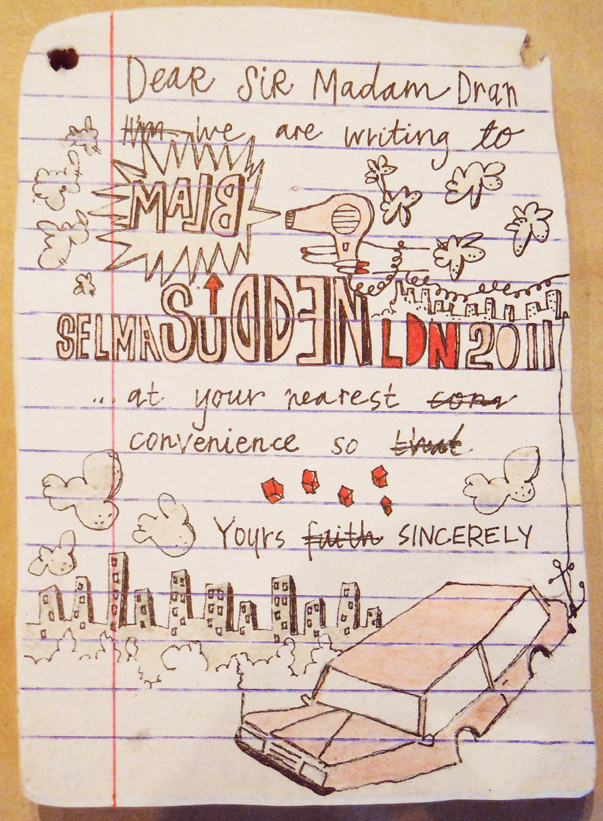 Dear Sir Madam Dran
we are writing to
BLAM
SELMA SUDDEN LDN 2011
... at your nearest
convenience so that
Yours faith SINCERELY